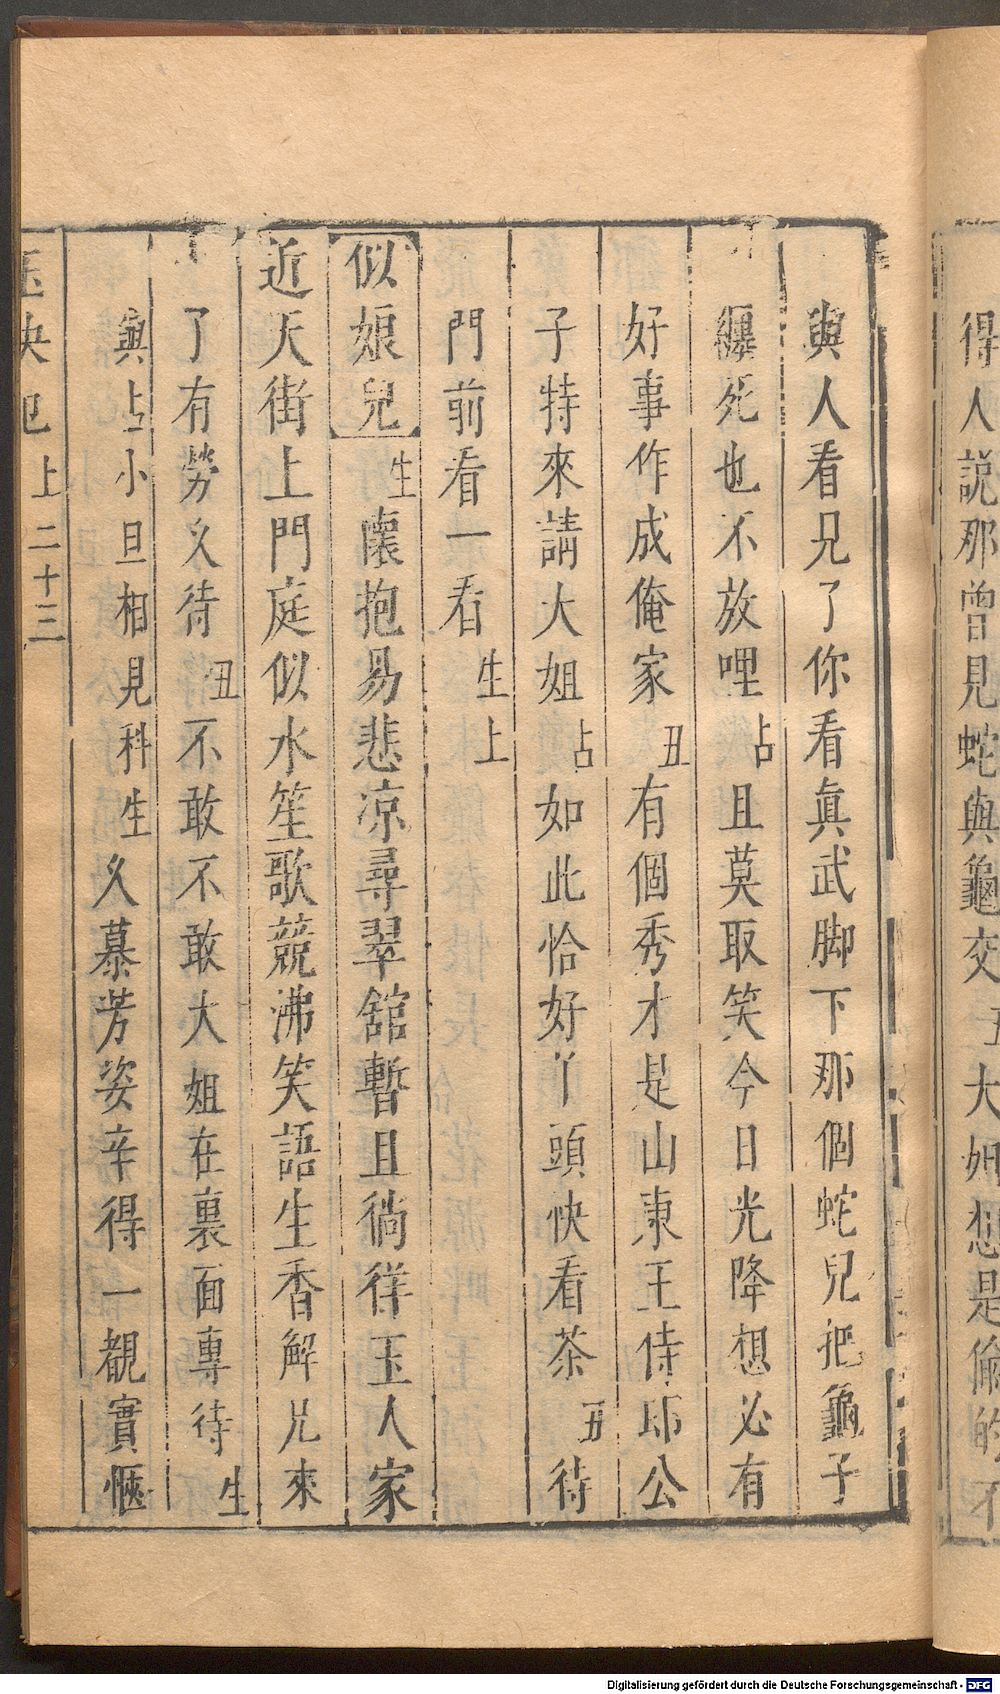 得人說那曾見蛇與龜交丑大姐想是偷的不
與人看兄了你看眞武脚下那個蛇兒把龜子
纏死也不放哩占且莫取笑今日光降想必有
好事作成俺家丑有個秀才是山東王侍郎公
子特來請大姐占如此恰好丫頭快看茶丑待
門前看一看生上
似娘兒生懷抱易悲凉尋翠舘暫且徜徉玉人家
近天街上門庭似水笙歌競沸笑語生香解兄來
了有勞久待丑不敢不敢大姐在裏面專待生
與占小旦相見科生久慕芳姿幸得一覩實愜
玉玦記上二十三
Digitalisierung gefördert durch die Deutsche Forschungsgemeinschaft - DFG